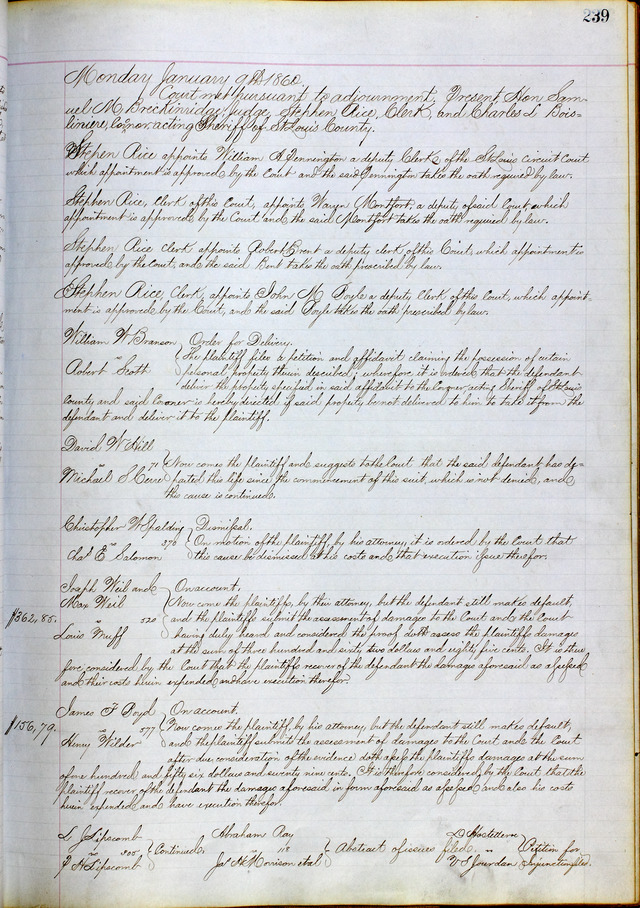 239
Monday January 9th 1860
Court met pursuant to adjournment, Present Hon Sam-
uel M. Breckinridge, Judge, Stephen Rice, Clerk, and Charles L Bois-
liniere, Coroner, acting Sheriff of St Louis County.
Stephen Rice appoints William A Pennington a deputy Clerk of the St Louis Circuit Court
which appointment is approved by the Court and the said Pennington takes the oath required by law.
Stephen Rice, Clerk of this Court, appoints Wayn Montfort, a deputy of said Court, which
appointment is approved by the Court and the said Montfort takes the oath required by law.
Stephen Rice clerk appoints Robert Brent a deputy clerk of this Court, which appointment is
approved by the Court, and the said Brent takes the oath prescribed by law.
Stephen Rice, Clerk, appoints John M Doyle a deputy Clerk of this Court, which appoint-
ment is approved by the Court, and the said Doyle takes the oath prescribed by law.
William W Branson Order for Delivery.
vs The plaintiff files a petition and affidavit claiming the possession of certain
Robert Scott personal property therein described; wherefore, it is ordered that the defendant
deliver the property specified in said affidavit to the Coroner acting Sheriff of St Louis
County and said Coroner is hereby directed if said property be not delivered to him to take it from the
defendant and deliver it to the plaintiff.
David W Hill
vs 71 Now comes the plaintiff and suggests to the Court that the said defendant has de-
Michael S parted this life since the commencement of this suit, which is not denied, and
this cause is continued.
Christopher W Spalding Dismissal.
vs 370 On motion of the plaintiff, by his attorney, it is ordered by the Court that
Chas E Salomon this cause be dismissed at his costs and that execution issue therefor.
Joseph Weil and On account.
Max Weil Now come the plaintiffs, by their attorney, but the defendant still makes default,
$362,85. vs 520 and the plaintiffs submit the assessment of damages to the Court and the Court
Louis Neuff having duly heard and considered the proof doth assess the plaintiffs damages
at the sum of three hundred and sixty two dollars and eighty five cents. It is there
fore, considered by the Court that the plaintiffs recover of the defendant the damages aforesaid as assessed
and their costs herein expended and have execution therefor.
James F Boyd On account.
$156,79. vs 577 Now comes the plaintiff by his attorney, but the defendant still makes default,
Henry Wilder and the plaintiff submits the assessment of damages to the Court and the Court
after due consideration of the evidence doth assess the plaintiffs damages at the sum
of one hundred and fifty six dollars and seventy nine cents. It is therefore considered by the Court that the
plaintiff recover of the defendant the damages aforesaid in form aforesaid as assessed and also his costs
herein expended and have execution therefor.
L J Lipscomb Abraham Ray D
vs Continued. vs 118 Abstract of issues filed. vs Petition for
P H Lipscomb Jas H Morrison et al V S Jourdan Injunction filed.